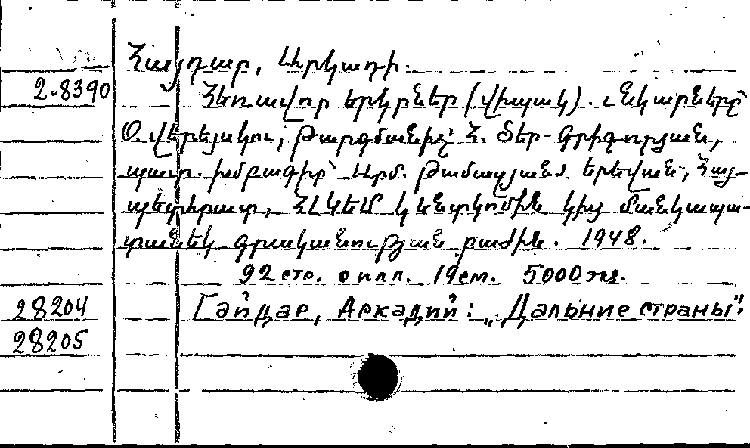 Հայդար, Արկադի.
2-8390 Հեռավոր երկրներ (վիպակ). Նկարները
Օ. Վերեյսկու, թարգմանիչ՝ Հ. Տեր-Գրիգորյան,
պատ. խմբագիր՝ Արմ. Թամամյան։ Երեվան, Հայ-
պետհրատ, ՀԼԿԵՄ Կենտկոմին կից մանկապա-
տանեկ գրականության բաժին. 1948.
92 стр. с илл. 19 см. 5000 экз.
28204 Гайдар, Аркадий: „Дальние страны".
28205